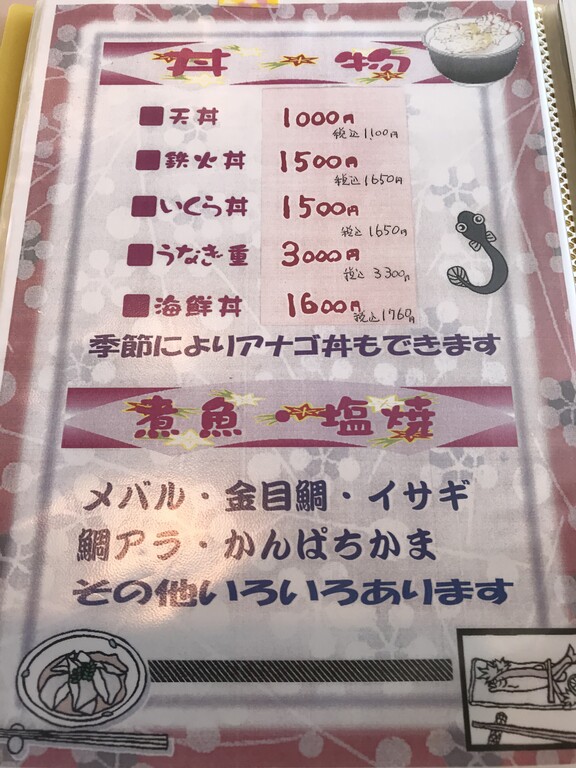 丼物
■天丼 1000円
税込1,100円
■鉄火丼 1500円
税込1650円
■いくら丼 1500円
税込1650円
■うなぎ重 3000円
税込3300円
■海鮮丼 1600円
税込1760円
季節によりアナゴ丼もできます
煮魚・塩焼
メバル・金目鯛・イサギ
鯛アラ・かんぱちかま
その他いろいろあります